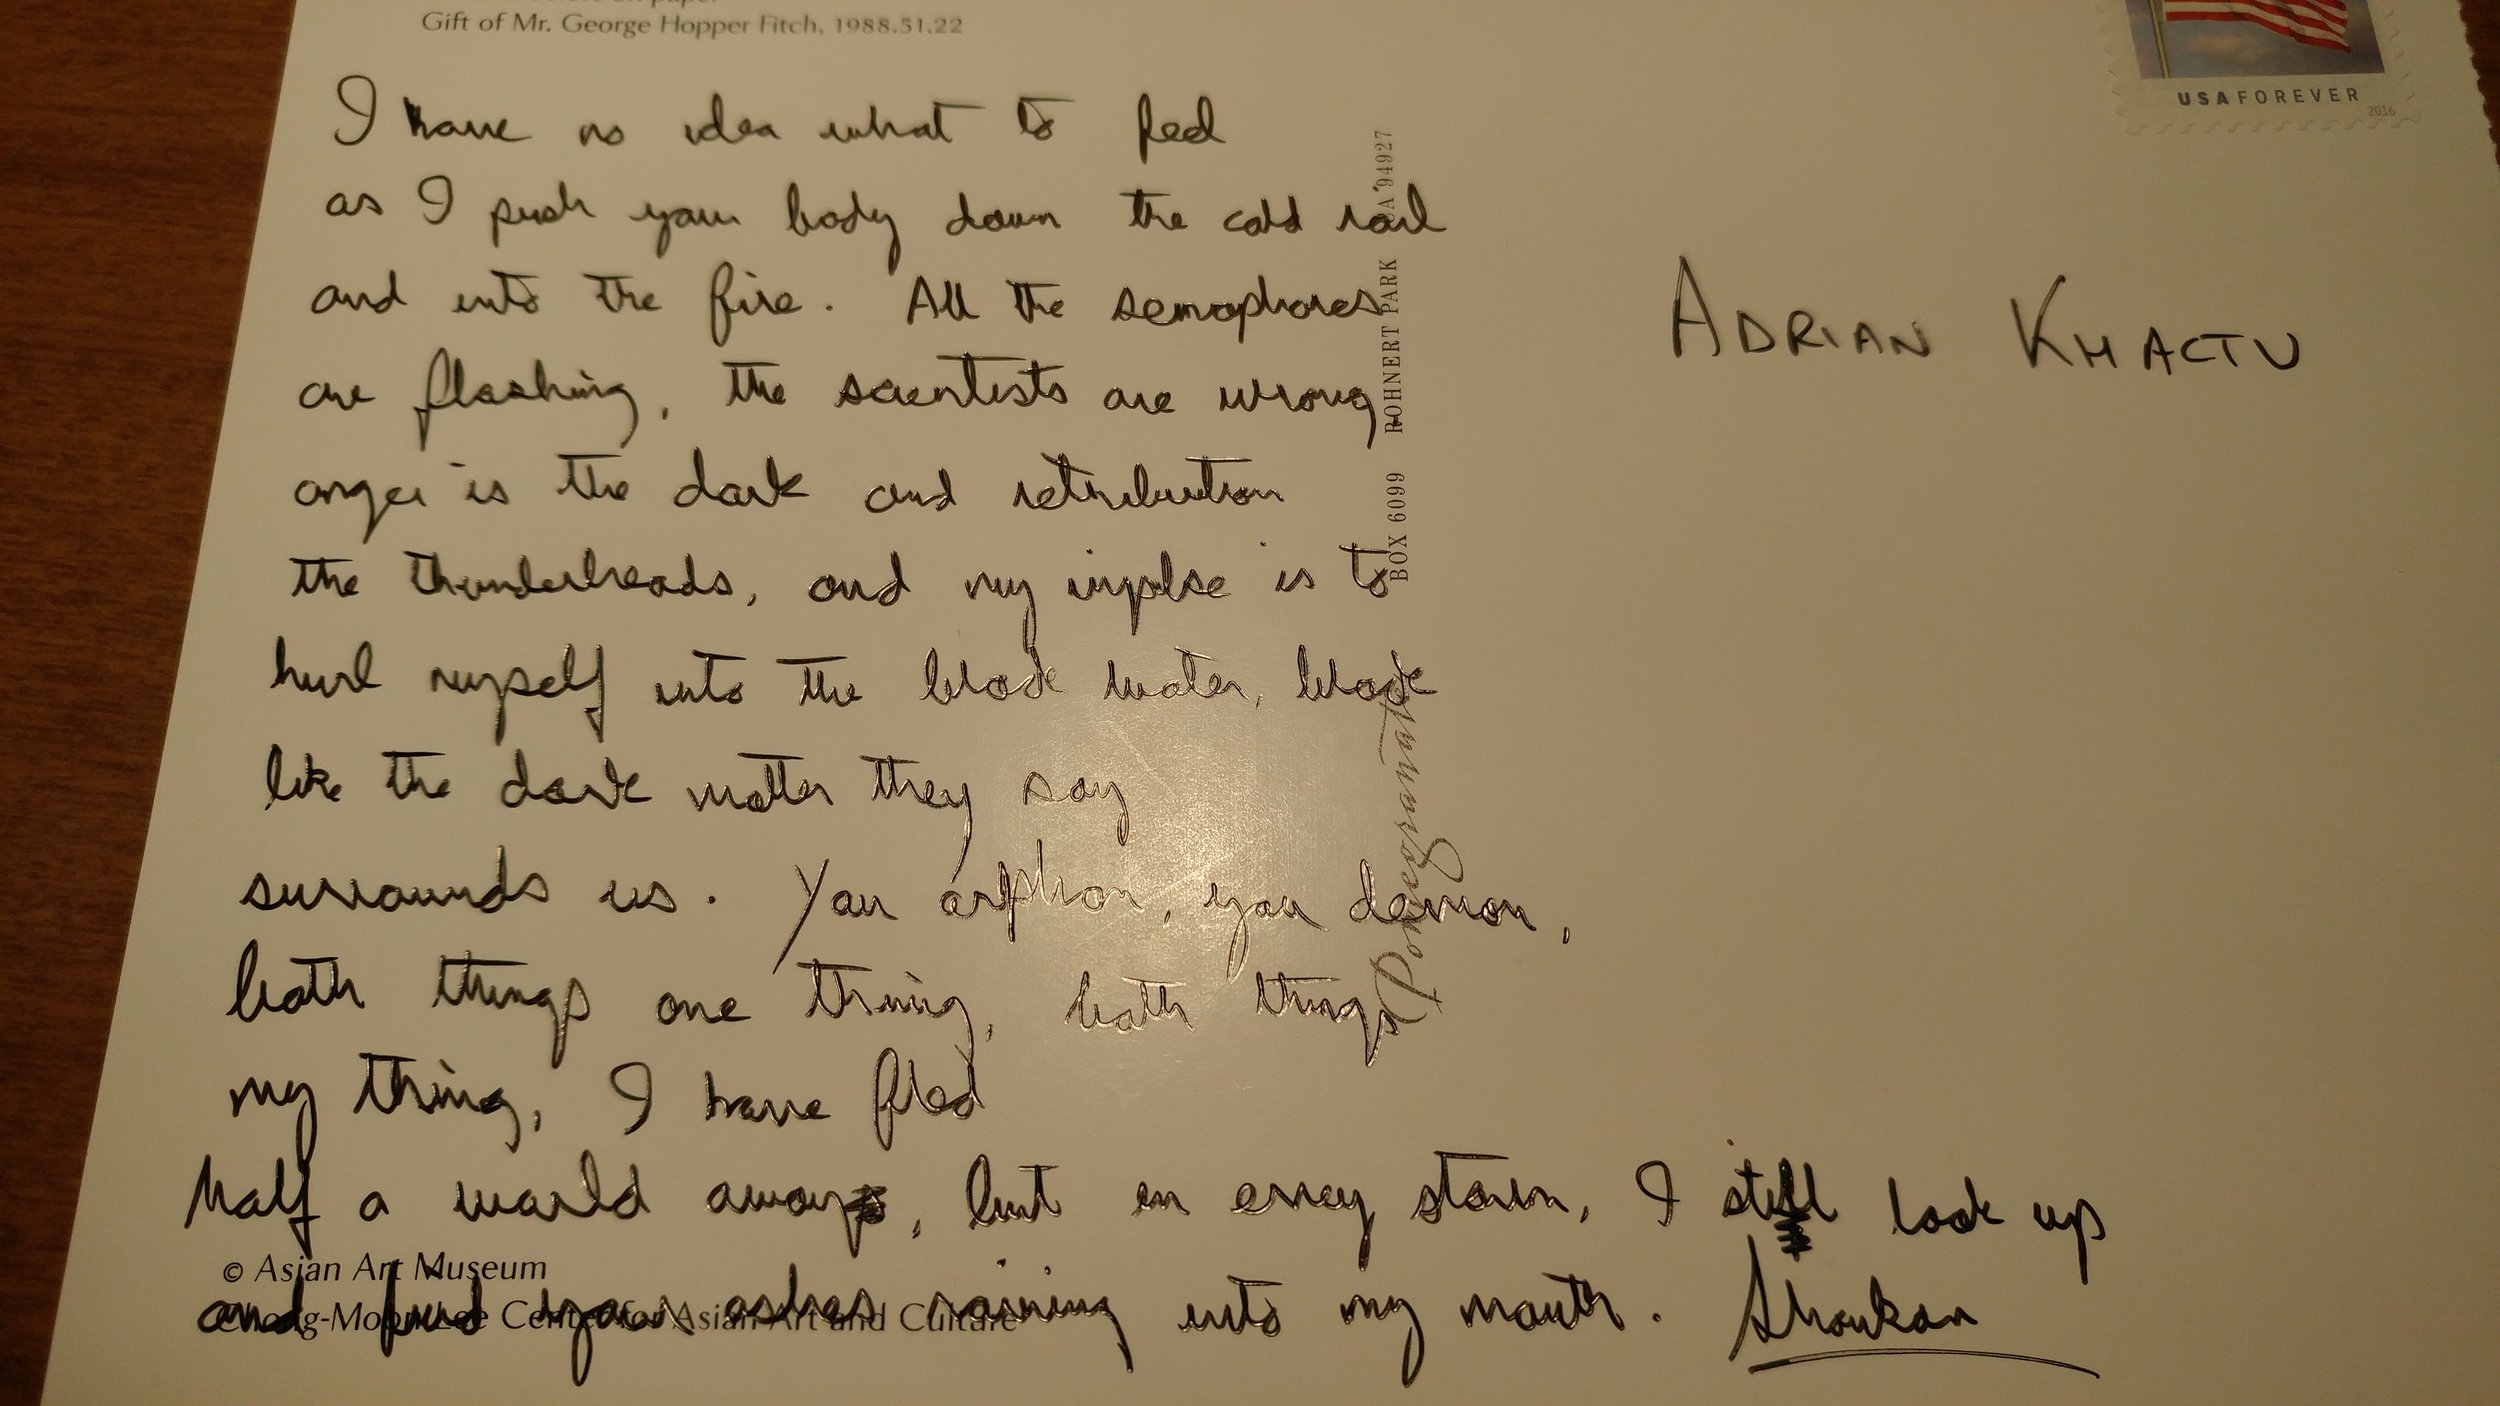 on paper
Gift of Mr. George Hopper Fitch, 1988.51.22
USA FOREVER
2016
I have no idea what to feel
as I push your body down the cold rail
and into the fire. All the semaphores
are flashing, the scientists are wrong
anger is the dark and retribution
the thunderheads, and my inplse is to
hurl myself into the black water, black
like the dark matter they say
surrounds us. You orphan, you demon,
both things one thing, both things
my thing, I have fled
half a world away, but in every storm, I still look up
and find your ashes raining into my mouth. Shoukan
ADRIAN KHACTU
Pomegranate BOX 6099 ROHNERT PARK CA 94927
© Asian Art Museum
Chong-Moon Lee Center for Asian Art and Culture